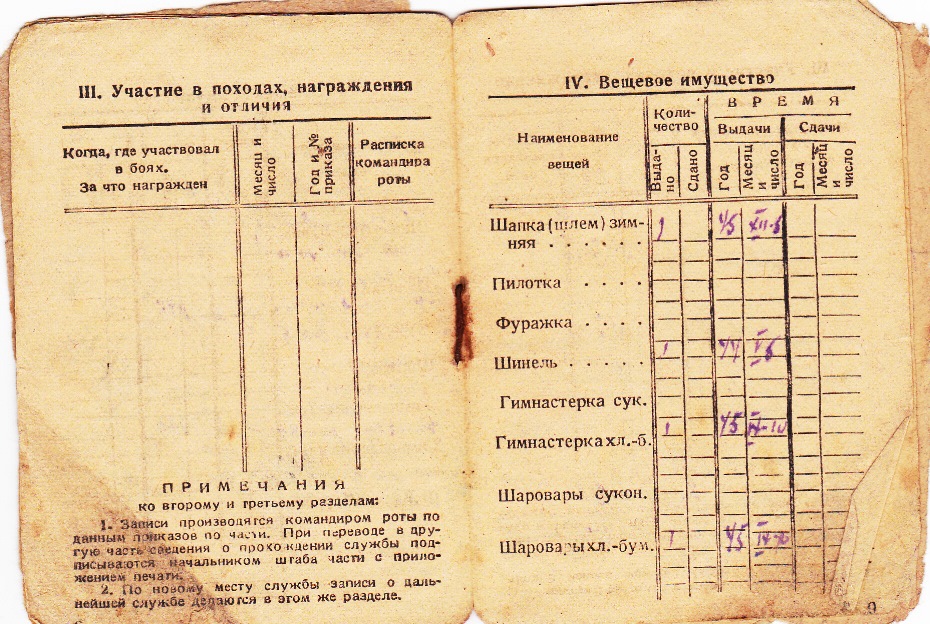 III. Участие в походах, награждения
и отличия
Когда, где участвовал
в боях.
За что награжден
Месяц и
число
Год и №
приказа
Расписка
командира
роты
ПРИМЕЧАНИЯ
ко второму и третьему разделам:
1. Записи производятся командиром роты по
данным приказов по части. При переводе в дру-
гую часть сведения о прохождении службы под-
писываются начальником штаба части с прило-
жением печати.
2. По новому месту службы записи о даль-
нейшей службе делаются в этом же разделе.
IV. Вещевое имущество
Наименование
вещей
Коли-
чество
ВРЕМЯ
Выдачи
Сдачи
Выда-
но
Сдано
Год
Месяц
и
число
Год
Месяц
и
число
Шапка (шлем) зим-
няя . . . . . . 1 45
Пилотка . . . .
Фуражка . . . .
Шинель . . . . . 1 44
Гимнастерка сук.
Гимнастерка хл.-б. 1 45
Шаровары сукон.
Шаровары хл.-бум. 1 45
9